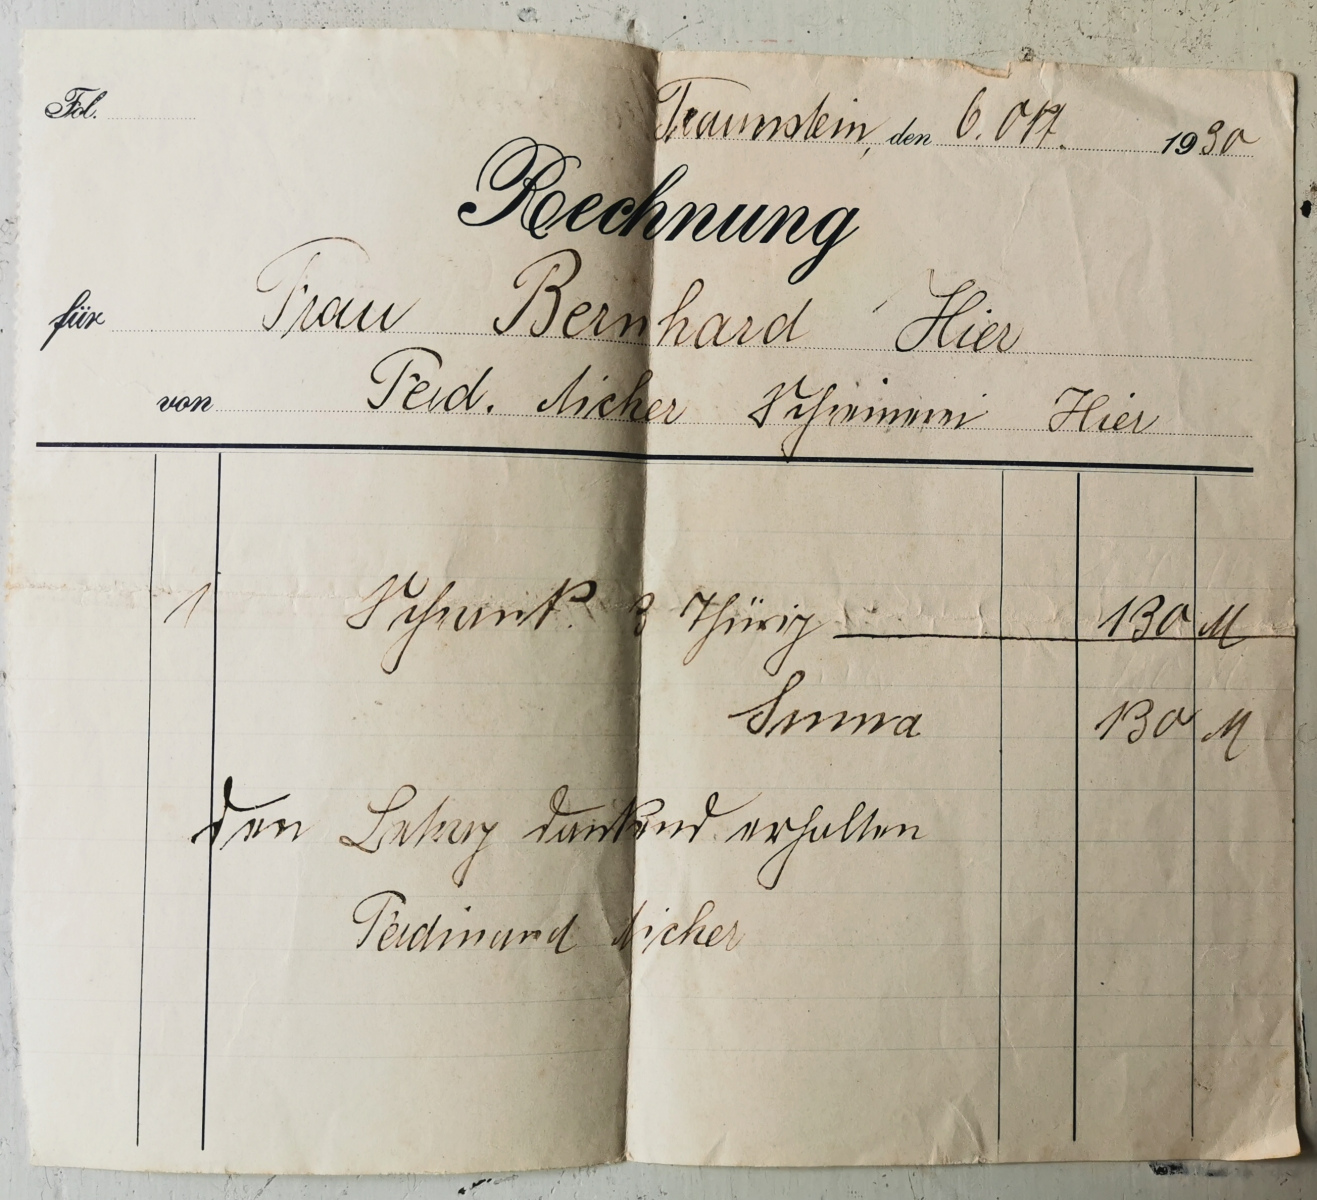 Fol.
Traunstein, den 6. Okt. 1930
Rechnung
für Frau Bernhard Hier
von Ferd. Aicher Schreinerei Hier
1 Schrank 3 Thürig 130 M
Summa 130 M
Den Betrag dankend erhalten
Ferdinand Aicher